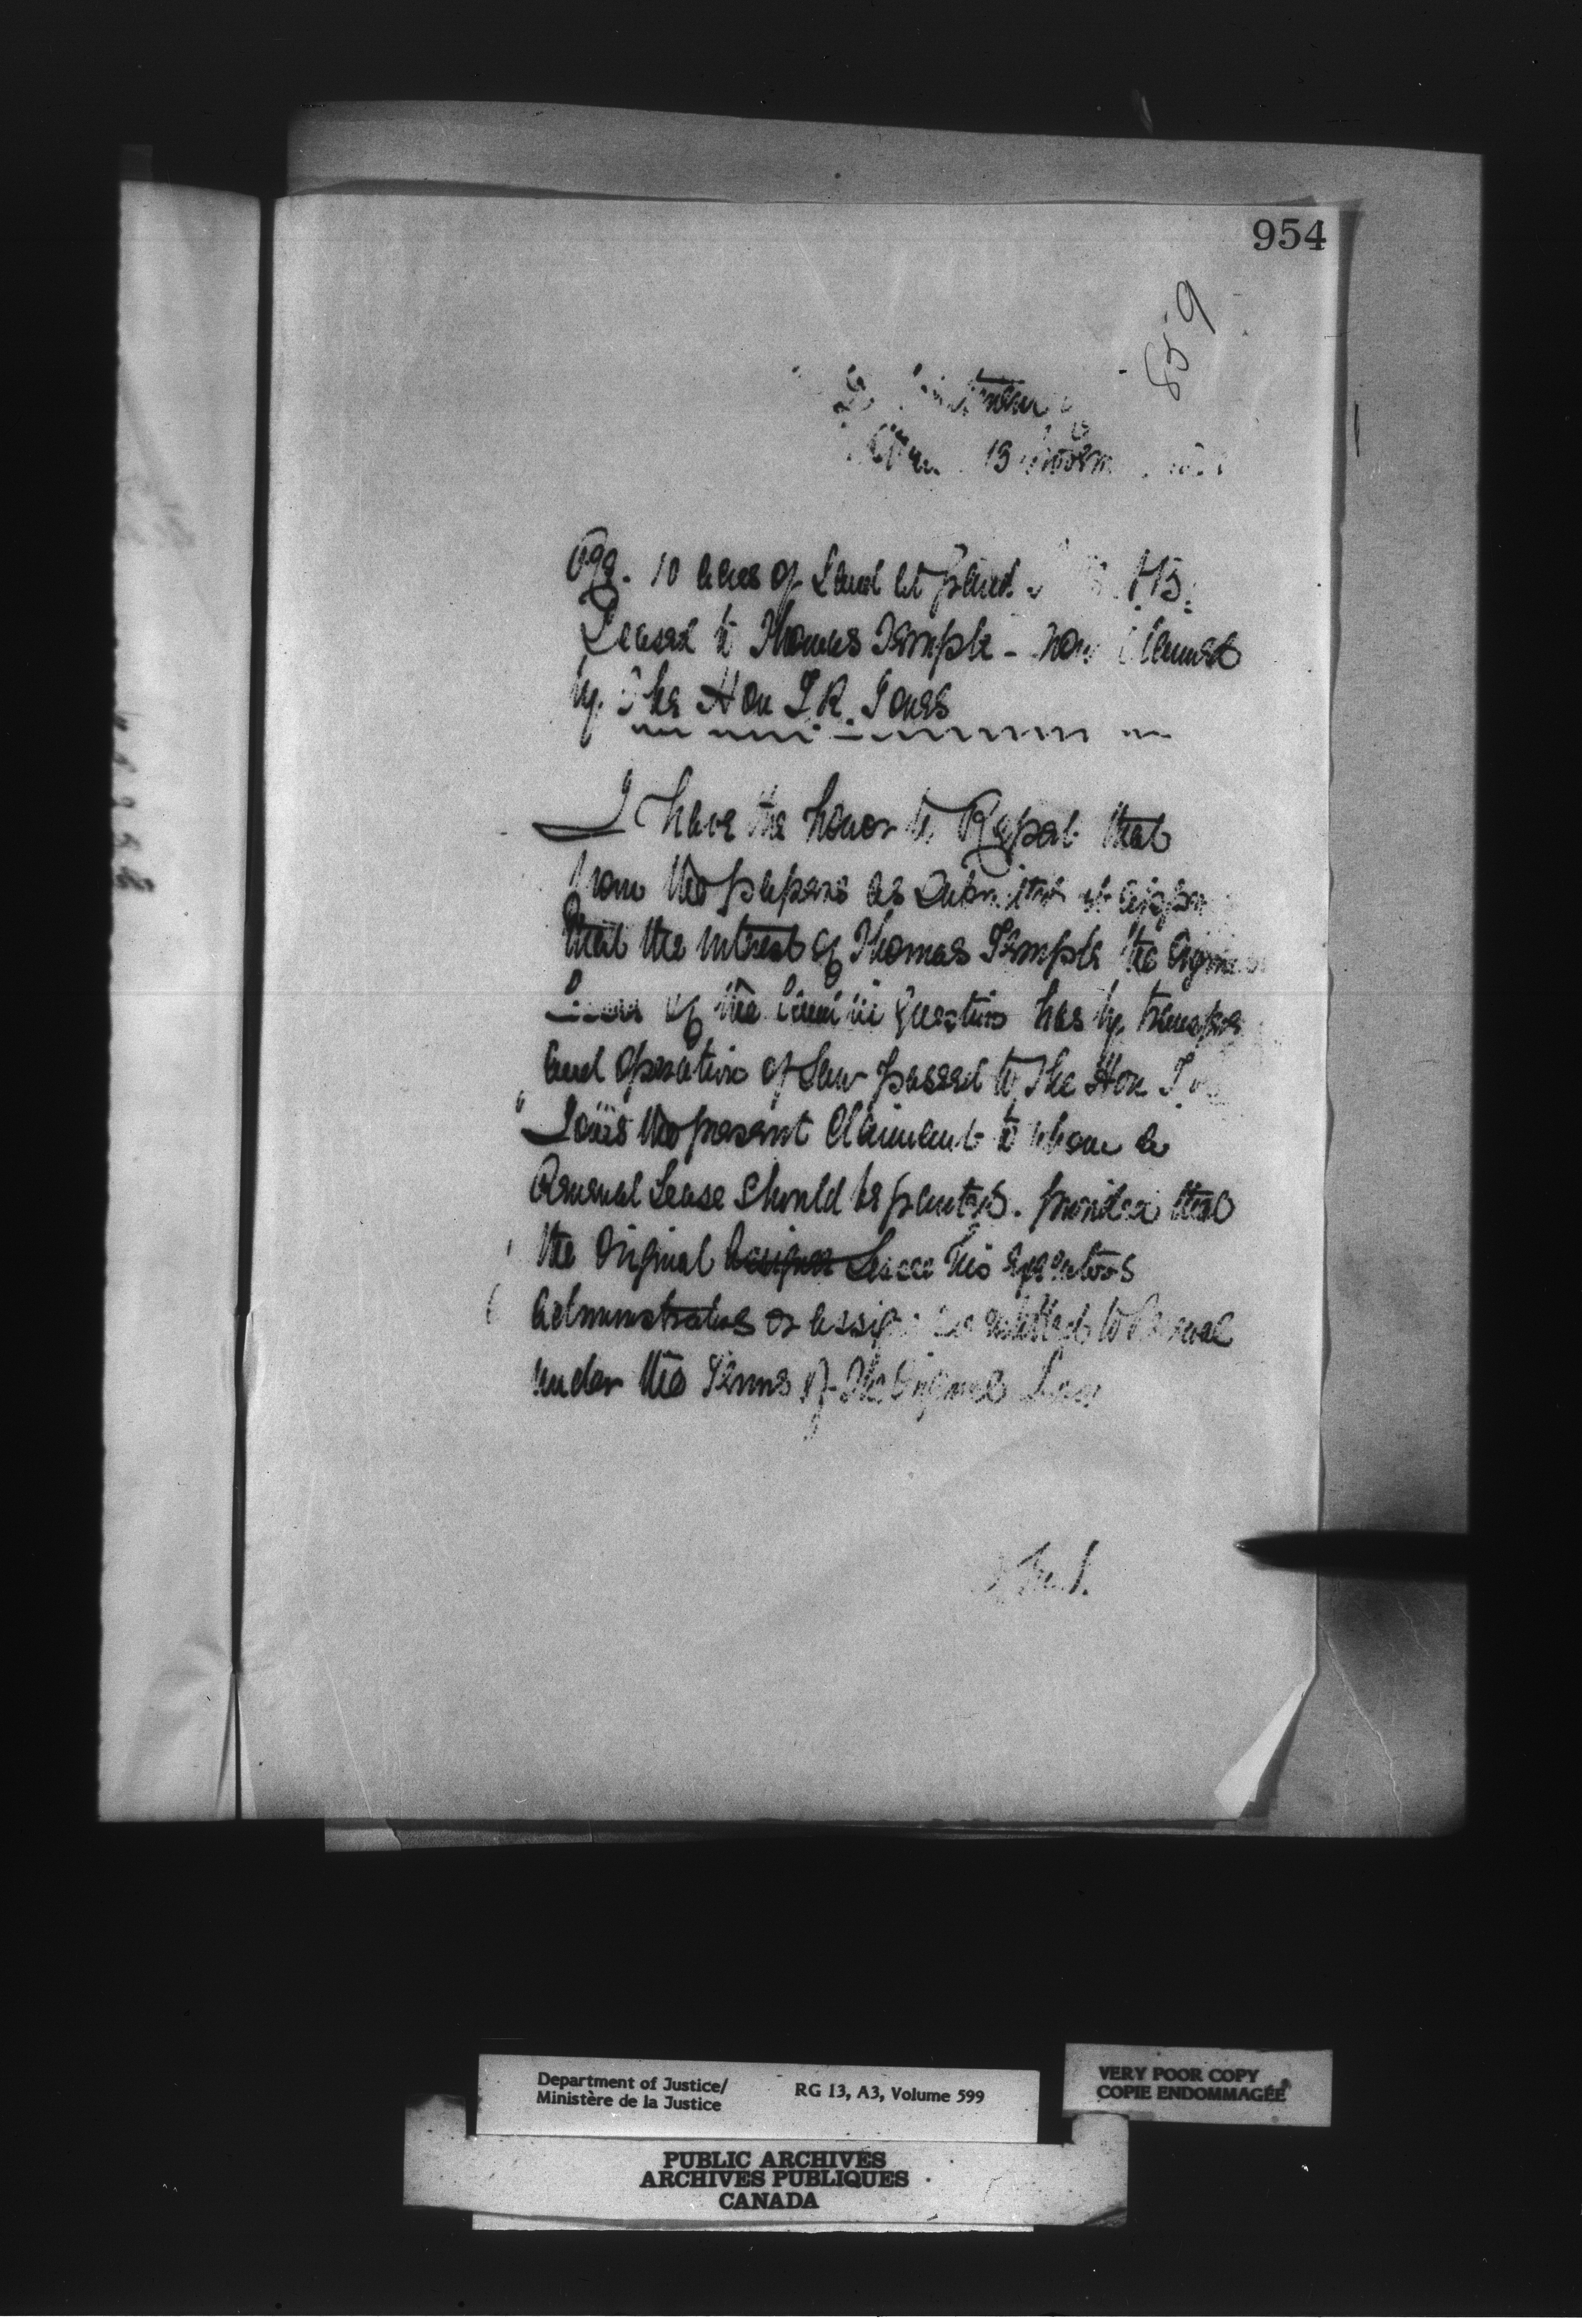 954
859
13
10 acres of Land at
Leased to Thomas Temple - now Claimed
by The Hon T.R. Jones
I have the honor to Report that
from the papers as Submitted it appears
that the interest of Thomas Temple the
of the Land in Question has by transfer
and operation of Law passed to The Hon T.R.
Jones the present Claimant to whom a
Renewal Lease Should be granted. provided that
the Original Lessee his executors
administrators or assigns is entitled to Renewal
under the Terms of The Original Lease
Department of Justice/
Ministère de la Justice
RG 13, A3, Volume 599
VERY POOR COPY
COPIE ENDOMMAGÉE
PUBLIC ARCHIVES
ARCHIVES PUBLIQUES
CANADA